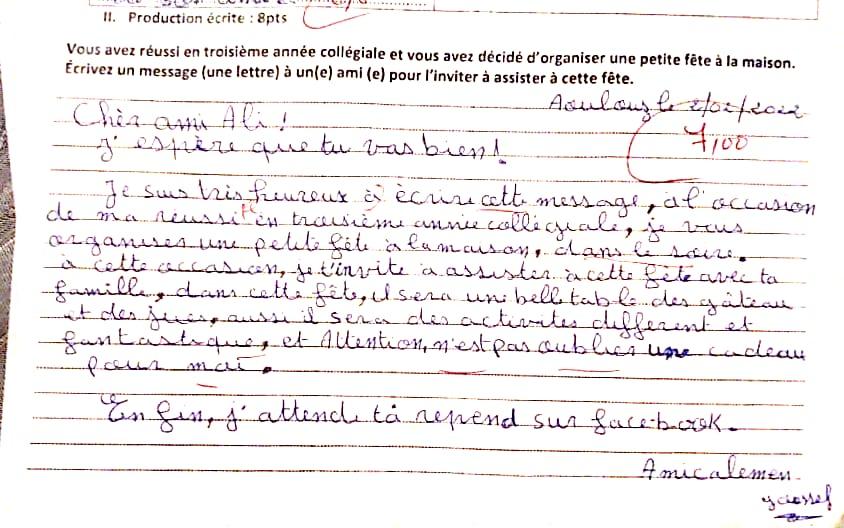 II. Production écrite : 8pts
Vous avez réussi en troisième année collégiale et vous avez décidé d'organiser une petite fête à la maison.
Écrivez un message (une lettre) à un(e) ami (e) pour l'inviter à assister à cette fête.
Aoulouz le 2/02/2022
Chèr ami Ali !
7,00
j'espère que tu vas bien !
Je suis tris heureux è écrire cette message, à l'occasion
de ma reussi en troisième année collégiale, je vous
organises une petite fête à la maison, dans le soire.
à cette occasion, je t'invite à assister à cette fête avec ta
famille, dans cette fête, il sera une bell table des gâteau
et des jues, aussi il sera des activites différent et
fantastique, et Attention, n'est pas oublies une cadeau
pour moi.
En fin, j'attend tà repend sur facebook.
Amicalemen
youssef